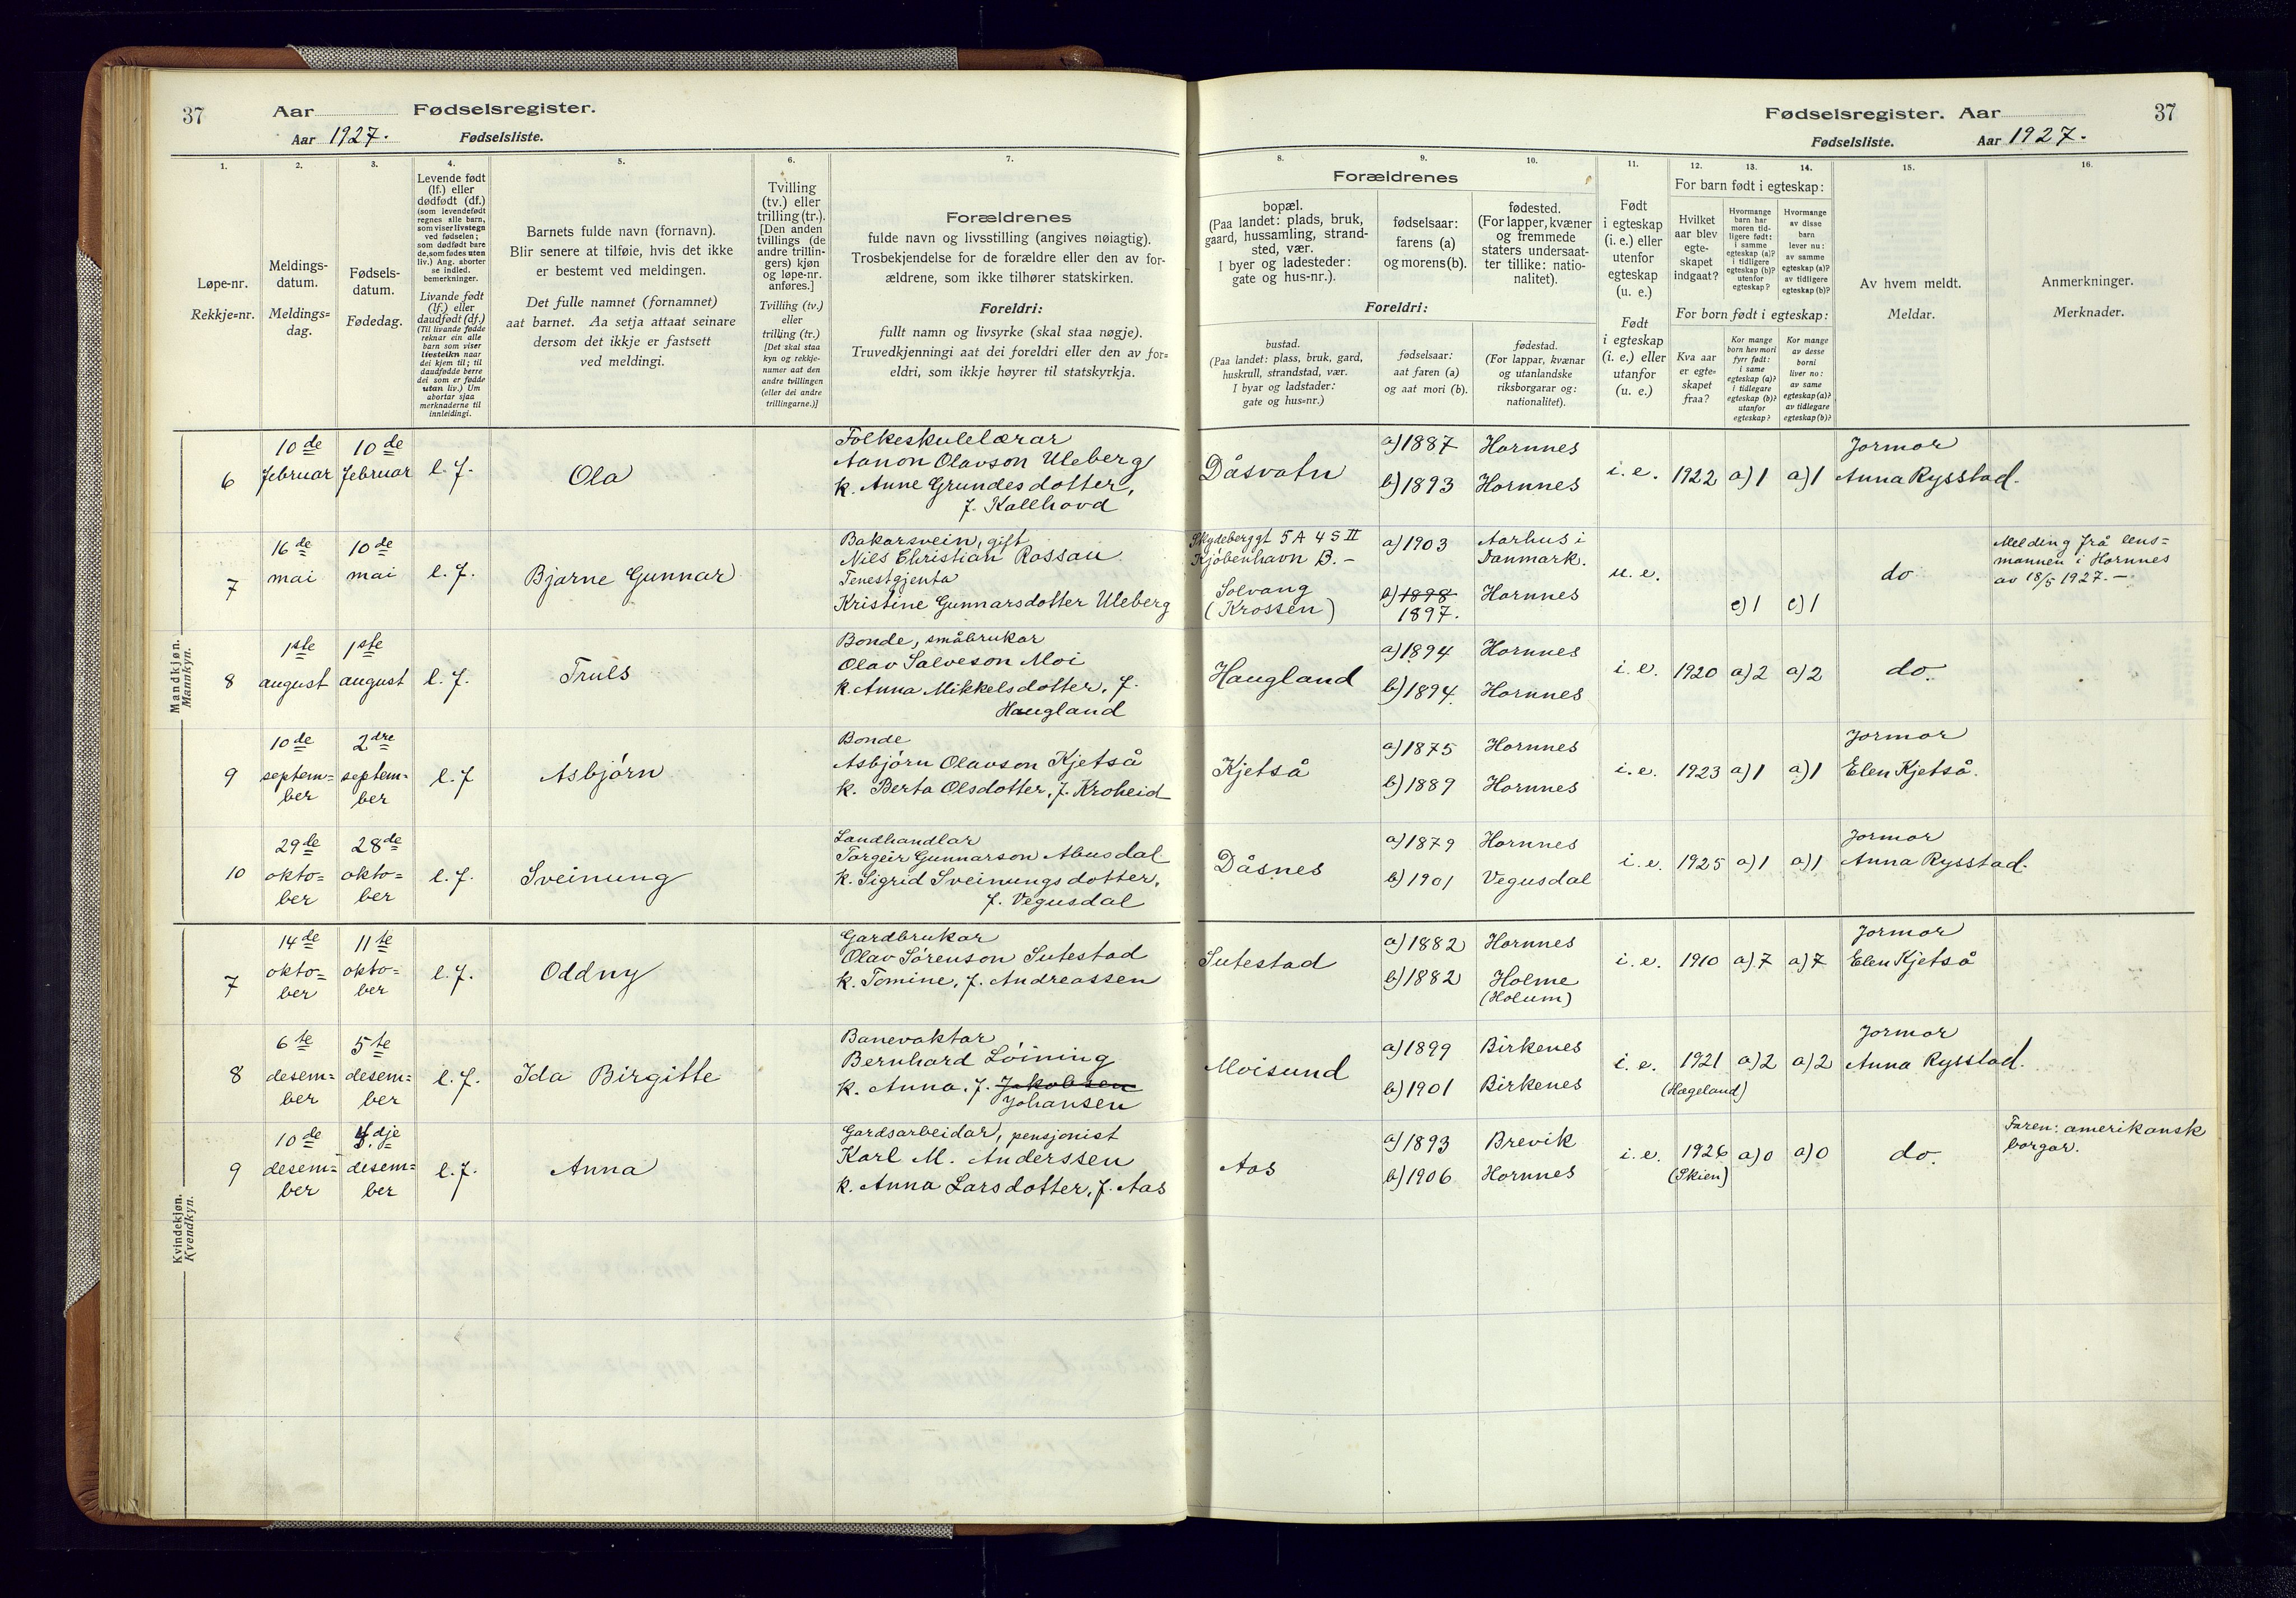 37
Aar Fødselsregister.
Aar 1927. Fødselsliste.
1.
2.
3.
4.
5.
6.
7.
Løpe-nr.
Rekkje=nr.
Meldings-
datum.
Meldings=
dag.
Fødsels-
datum.
Fødedag.
Levende født
(lf.) eller
dødfødt (df.)
(som levendefødt
regnes alle barn,
som viser livstegn
ved fødselen;
som dødfødt bare
de, som fødes uten
liv.) Ang. aborter
se indled.
bemerkninger.
Livande født
(lf.) eller
daudfødt (df.)
(Til livande fødde
reknar ein alle
barn som viser
livsteikn naar
dei kjem til; til
daudfødde berre
dei som er fødde
utan liv.) Um
abortar sjaa
merknaderne til
innleidingi.
Barnets fulde navn (fornavn).
Blir senere at tilføie, hvis det ikke
er bestemt ved meldingen.
Det fulle namnet (fornamnet)
aat barnet. Aa setja attaat seinare
dersom det ikkje er fastsett
ved meldingi.
Tvilling
(tv.) eller
trilling (tr.).
[Den anden
tvillings (de
andre trillin-
gers) kjøn
og løpe-nr.
anføres.]
Tvilling (tv.)
eller
trilling (tr.)
[Det skal staa
kyn og rekkje-
numer aat den
andre tvillingen
(eller dei andre
trillingarne.)]
Forældrenes
fulde navn og livsstilling (angives nøiagtig).
Trosbekjendelse for de forældre eller den av for-
ældrene, som ikke tilhører statskirken.
Foreldri:
fullt namn og livsyrke (skal staa nøgje).
Truvedkjenningi aat dei foreldri eller den av for=
eldri, som ikkje høyrer til statskyrkja.
Mandkjøn.
Mannkyn.
6
10de
februar
10de
februar
l. f.
Ola
Folkeskulelærar
Aanon Olavson Uleberg
k. Anne Grundesdotter,
f. Kallhovd
7
16de
mai
10de
mai
l. f.
Bjarne Gunnar
Bakarsvein, gift
Niels Christian Rossau
Tenestgjenta
Kristine Gunnarsdotter Uleberg
8
1ste
august
1ste
august
l. f.
Truls
Bonde, småbrukar
Olav Salveson Moi
k. Anna Mikkelsdotter, f.
Haugland
9
10de
septem=
ber
2dre
septem=
ber
l. f
Asbjørn
Bonde
Asbjørn Olavson Kjetså
k. Berta Olsdotter, f. Kroheid
10
29de
okto=
ber
28de
okto=
ber
l. f.
Sveinung
Landhandlar
Torgeir Gunnarson Abusdal
k. Sigrid Sveinungsdotter,
f. Vegusdal
Kvindekjøn.
Kvendkyn.
7
14de
okto=
ber
11te
okto=
ber
l. f.
Oddny
Gardbrukar
Olav Sørenson Sutestad
k. Tomine, f. Andreassen
8
6te
desem=
ber
5te
desem=
ber
l. f.
Ida Birgitte
Banevaktar
Bernhard Løining
k. Anna, f. Jakobsen
Johansen
9
10de
desem=
ber
dje
desem=
ber
l. f.
Anna
Gardsarbeidar, pensjonist
Karl M. Anderssen
k. Anna Larsdotter, f. Aas
Fødselsregister. Aar
37
Fødselsliste. Aar 1927.
8.
9.
10.
11.
12.
13.
14.
15.
16.
Forældrenes
bopæl.
(Paa landet: plads, bruk,
gaard, hussamling, strand-
sted, vær.
I byer og ladesteder:
gate og hus-nr.).
fødselsaar:
farens (a)
og morens (b).
fødested.
(For lapper, kvæner
og fremmede
staters undersaat-
ter tillike: natio-
nalitet).
Foreldri:
bustad.
(Paa landet: plass, bruk, gard,
huskrull, strandstad, vær.
I byar og ladstader:
gate og hus=nr.)
fødselsaar:
aat faren (a)
og aat mori (b).
fødestad.
(For lappar, kvænar
og utanlandske
riksborgarar og:
nationalitet).
Født
i egteskap
(i. e.) eller
utenfor
egteskap
(u. e.)
Født
i egteskap
(i. e.) eller
utanfor
egteskap
(u. e.)
For barn født i egteskap:
Hvilket
aar blev
egte-
skapet
indgaat?
Hvormange
barn har
moren tid-
ligere født:
i samme
egteskap (a)?
i tidligere
egteskap (b)?
utenfor
egteskap?
Hvormange
av disse
barn
lever nu:
av samme
egteskap (a)?
av tidligere
egteskap (b)?
For born født i egteskap:
Kva aar
er egte=
skapet
fraa?
Kor mange
born hev mori
fyrr født:
i same
egteskap (a)?
i tidlegare
egteskap (b)?
utanfor
egteskap?
Kor mange
av desse
borni
liver no:
av same
egteskap (a)?
av tidlegare
egteskap (b)?
Av hvem meldt.
Meldar.
Anmerkninger.
Merknader.
Dåsvatn
a) 1887
b) 1893
Hornnes
Hornnes
i. e.
1922
a) 1
a) 1
Jormor
Anna Rysstad.
5 A 4 S II
Kjøbenhavn B. -
Solvang
(Krossen)
a) 1903
b) 1898
1897.
Aarhus i
Danmark.
Hornnes
u. e.
c) 1
c) 1
do
Melding frå lens=
mannen i Hornnes
av 18/5 1927. -
Haugland
a) 1894
b) 1894.
Hornnes
Hornnes
i. e.
1920
a) 2
a) 2
do.
Kjetså
a) 1875
b) 1889
Hornnes
Hornnes
i. e.
1923
a) 1
a) 1
Jormor
Elen Kjetså.
Dåsnes
a) 1879
b) 1901
Hornnes
Vegusdal
i. e.
1925
a) 1
a) 1
Jormor
Anna Rysstad.
Sutestad
a) 1882
b) 1882
Hornnes
Holme
(Holum)
i. e.
1910
a) 7
a) 7
Jormor
Elen Kjetså
Moisund
a) 1899
b) 1901
Birkenes
Birkenes
i. e.
1921
(Hægeland)
a) 2
a) 2
Jormor
Anna Rysstad.
Aas
a) 1893
b) 1906
Brevik
Hornnes
i. e.
1926
(Skien)
a) 0
a) 0
do.
Faren: amerikansk
borgar.